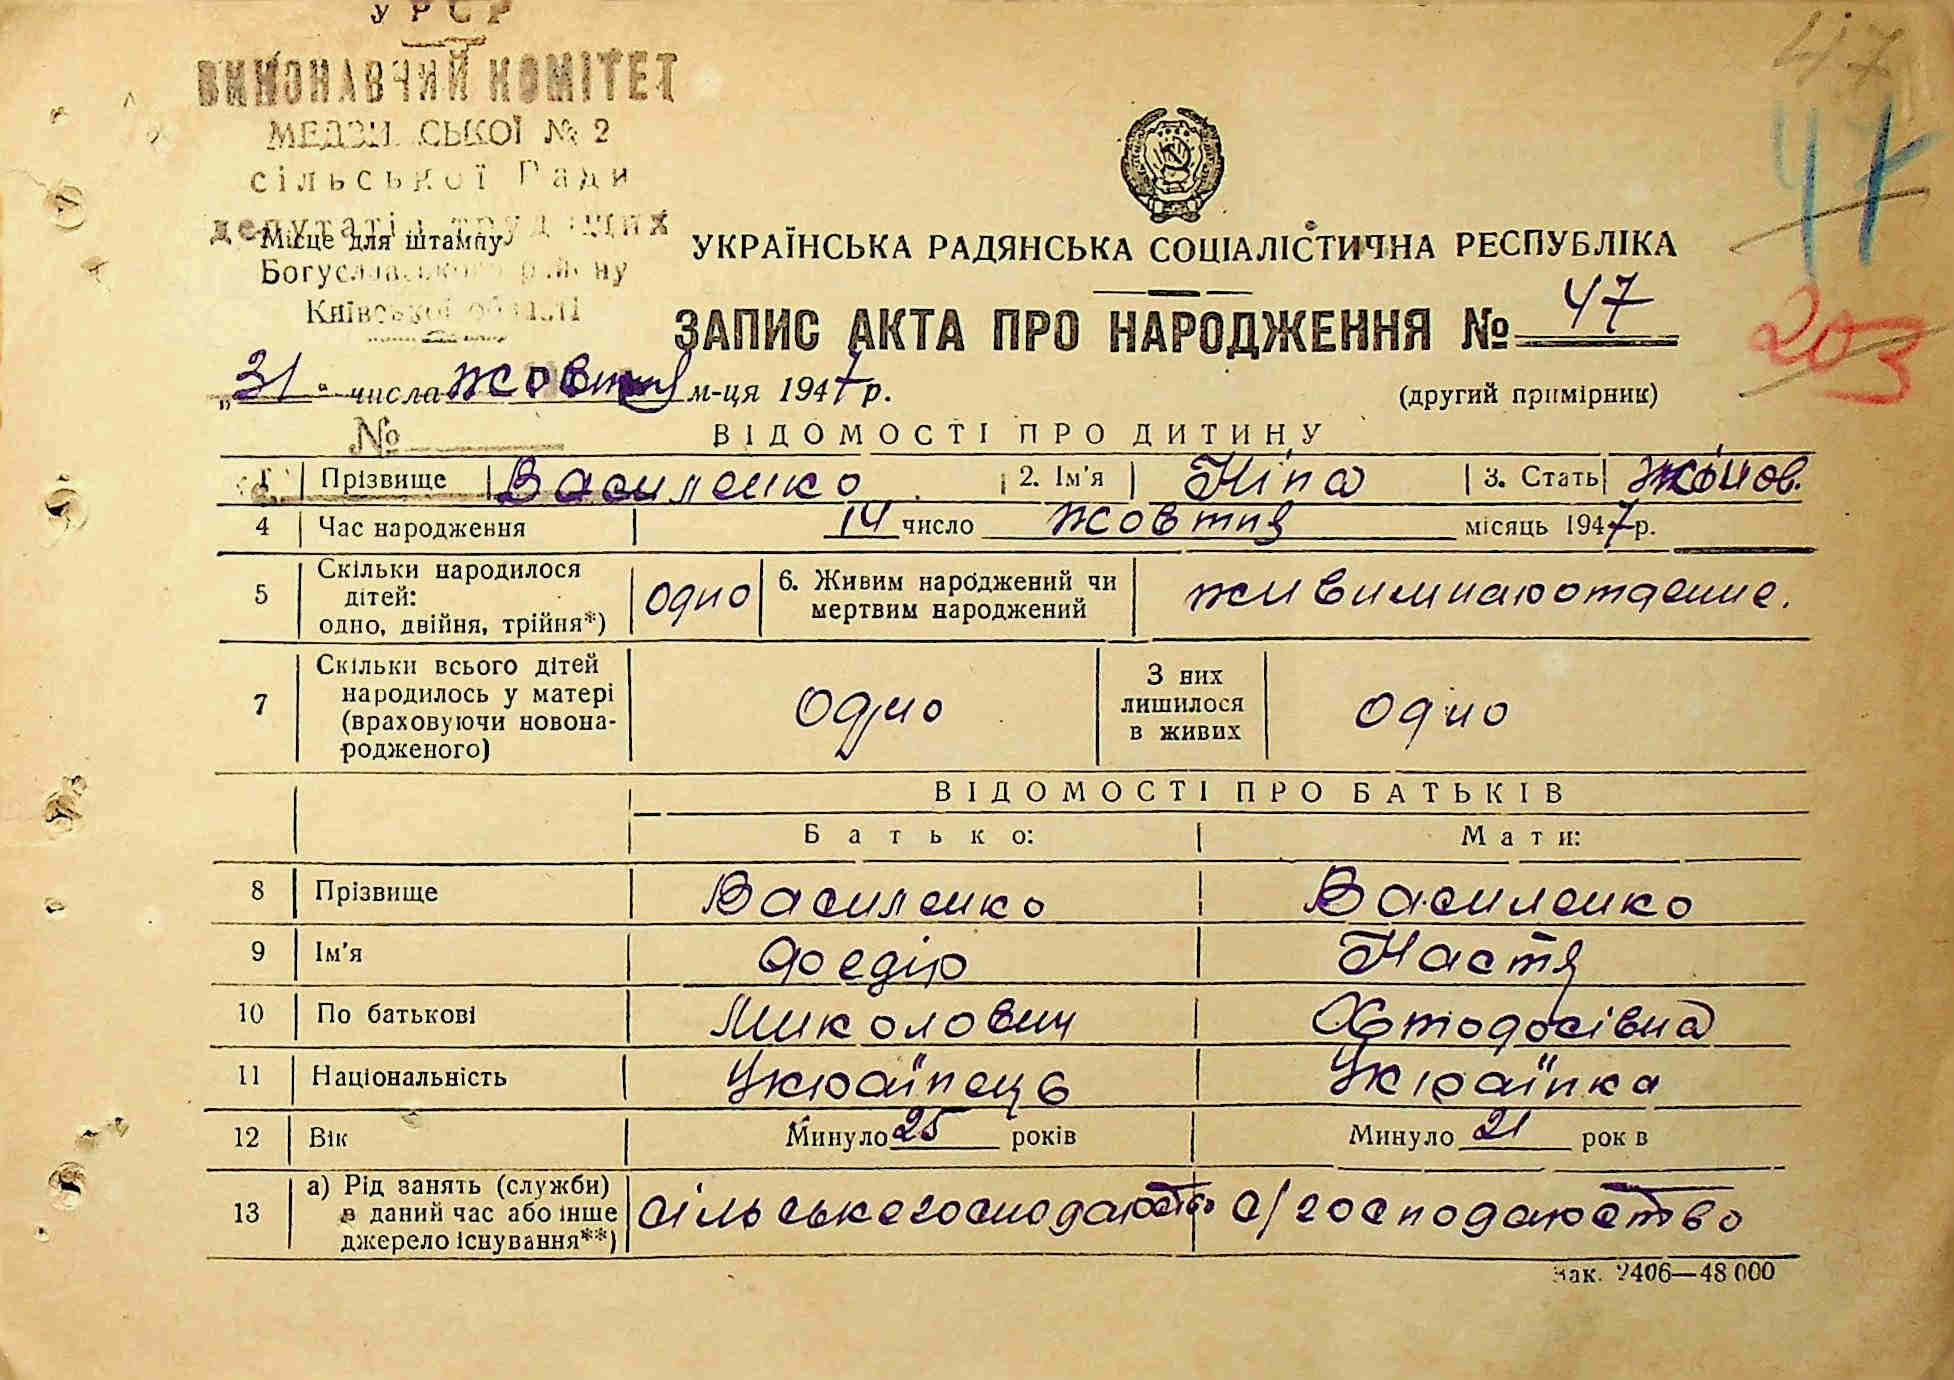 УРСР
ВИКОНАВЧИЙ КОМІТЕТ
СЬКОЇ № 2
сільської Ради
депутатів трудящих
Місце для штампу
Богуславського району
Київської області
47
47
203
УКРАЇНСЬКА РАДЯНСЬКА СОЦІАЛІСТИЧНА РЕСПУБЛІКА
ЗАПИС АКТА ПРО НАРОДЖЕННЯ № 47
„31“ числа жовтня м-ця 1947 р.
(другий примірник)
№
ВІДОМОСТІ ПРО ДИТИНУ
1 Прізвище Василенко 2. Ім'я Ніна 3. Стать жінов.
4 Час народження 14 число жовтня місяць 1947 р.
5 Скільки народилося дітей: одно, двійня, трійня*) одно 6. Живим народжений чи мертвим народжений
7 Скільки всього дітей народилось у матері (враховуючи новонародженого) одно З них лишилося в живих одно
ВІДОМОСТІ ПРО БАТЬКІВ
Батько: Мати:
8 Прізвище Василенко Василенко
9 Ім'я Федір Настя
10 По батькові Миколович
11 Національність Українець Українка
12 Вік Минуло 25 років Минуло 21 рок в
13 а) Рід занять (служби) в даний час або інше джерело існування**) сільськегосподарство с/господарство
Зак. 2406—48 000